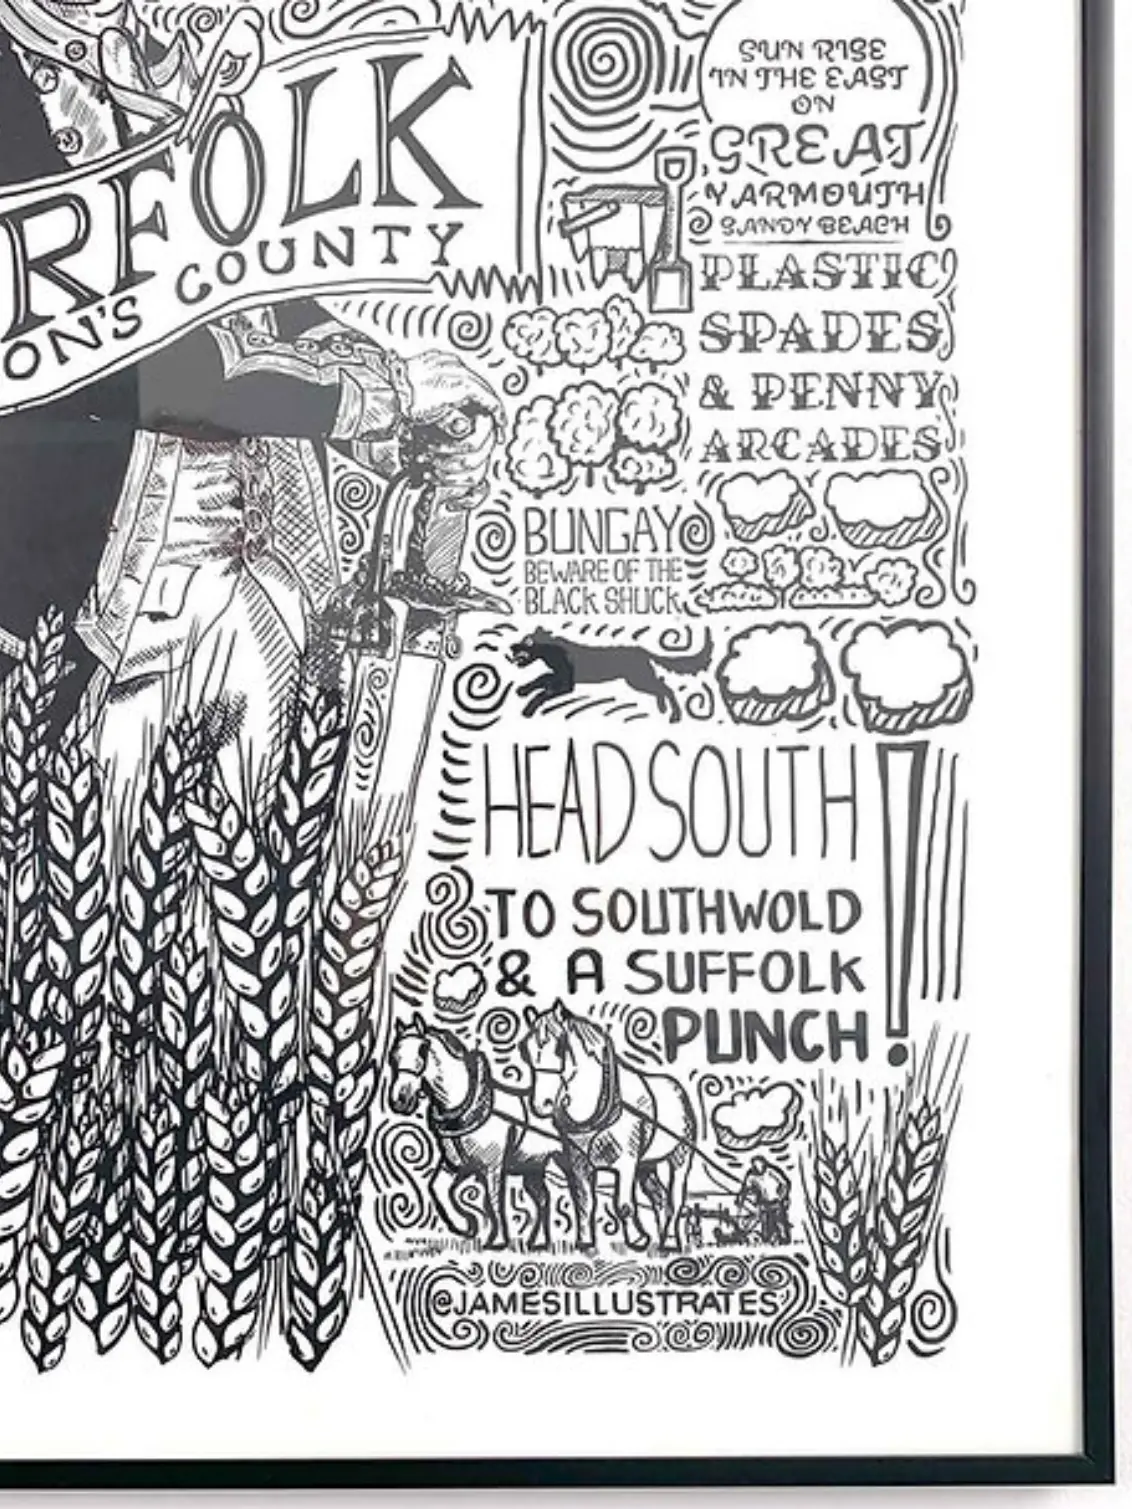 RFOLK
ON'S COUNTY
SUN RISE
IN THE EAST
ON
GREAT
YARMOUTH
SANDY BEACH
PLASTIC
SPADES
& PENNY
ARCADES
BUNGAY
BEWARE OF THE
BLACK SHUCK
HEAD SOUTH
TO SOUTHWOLD
& A SUFFOLK
PUNCH!
@JAMESILLUSTRATES